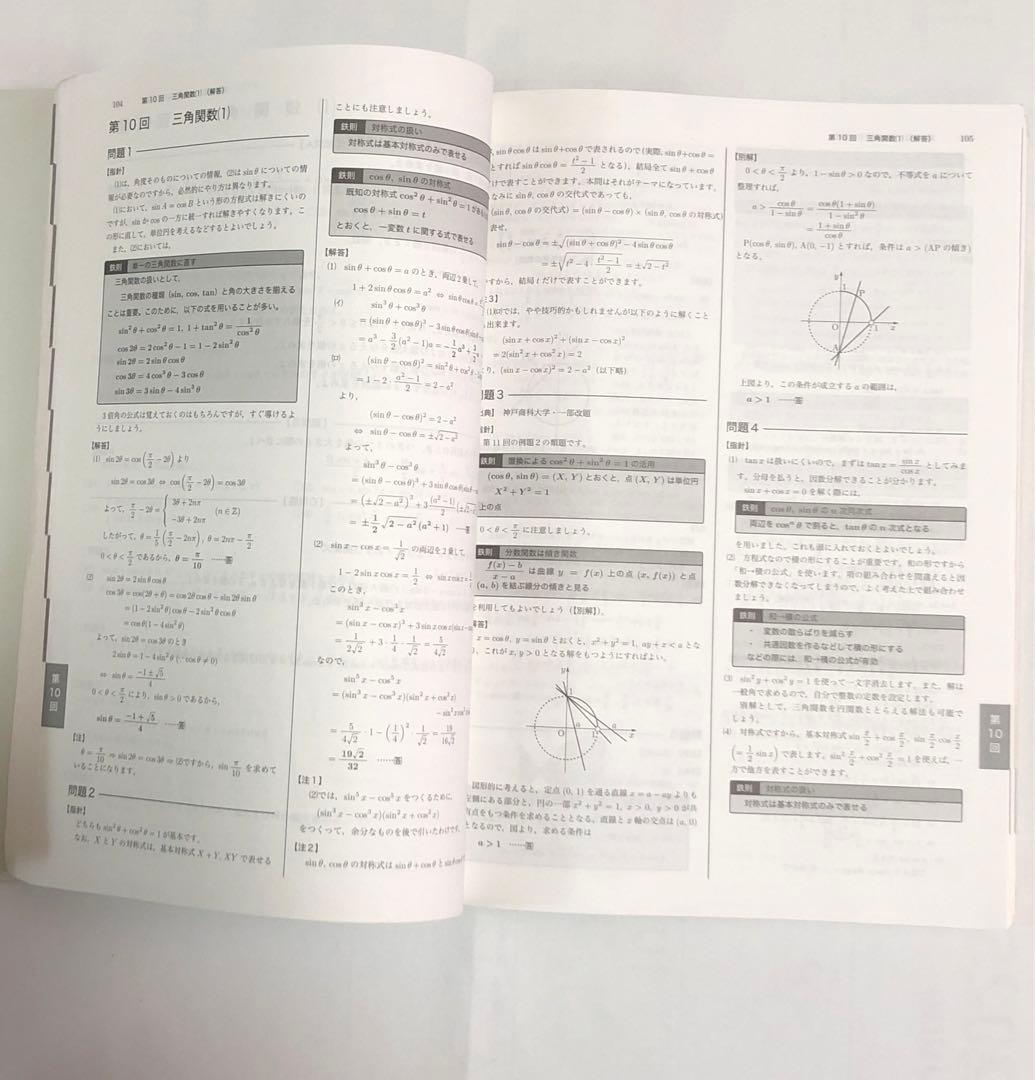 104 第10回 三角関数(1)(解答)
第10回 三角関数(1)
問題1
【指針】
(1)は、角度そのものについての情報、(2)は sinθ についての情
報が必要なのですから、必然的にやり方は異なります。
(1)において、sin A = cos B という形の方程式は解きにくいの
ですが、sin か cos の一方に統一すれば解きやすくなります。こ
の形に直して、単位円を考えるなどするとよいでしょう。
また、(2)においては、
鉄則 単一の三角関数に直す
三角関数の扱いとして、
三角関数の種類 (sin, cos, tan) と角の大きさを揃える
ことは重要。このために、以下の式を用いることが多い。
sin²θ + cos²θ = 1, 1 + tan²θ = 1/cos²θ
cos 2θ = 2cos²θ − 1 = 1 − 2sin²θ
sin 2θ = 2sinθcosθ
cos 3θ = 4cos³θ − 3cosθ
sin 3θ = 3sinθ − 4sin³θ
3倍角の公式は覚えておくのはもちろんですが、すぐ導けるよ
うにしましょう。
【解答】
(1) sin 2θ = cos(π/2 − 2θ) より
sin 2θ = cos 3θ ⇔ cos(π/2 − 2θ) = cos 3θ
よって、π/2 − 2θ = { 3θ + 2nπ
−3θ + 2nπ (n ∈ Z)
したがって、θ = 1/5(π/2 − 2nπ), θ = 2nπ − π/2
0 < θ < π/2 であるから、θ = π/10 ……答
(2) sin 2θ = 2sinθcosθ
cos 3θ = cos(2θ + θ) = cos 2θ cosθ − sin 2θ sinθ
= (1 − 2sin²θ)cosθ − 2sin²θcosθ
= cosθ(1 − 4sin²θ)
よって、sin 2θ = cos 3θ のとき
2sinθ = 1 − 4sin²θ (∵ cosθ ≠ 0)
⇔ sinθ = (−1 ± √5)/4
0 < θ < π/2 により、sinθ > 0 であるから、
sinθ = (−1 + √5)/4 ……答
【注】
θ = π/10 ⇒ sin 2θ = cos 3θ ⇒ (2)ですから、sin π/10 を求めて
いることになります。
問題2
【指針】
どちらも sin²θ + cos²θ = 1 が基本です。
なお、X と Y の対称式は、基本対称式 X + Y, XY で表せる
第10回
ことにも注意しましょう。
鉄則 対称式の扱い
対称式は基本対称式のみで表せる
鉄則 cosθ, sinθ の対称式
既知の対称式 cos²θ + sin²θ = 1 があ
cosθ + sinθ = t
とおくと、一変数 t に関する式で表せる
【解答】
(1) sinθ + cosθ = a のとき、両辺2乗して、
1 + 2sinθcosθ = a² ⇔ sinθcosθ
(イ) sin³θ + cos³θ
= (sinθ + cosθ)³ − 3sinθcosθ
= a³ − 3/2(a² − 1)a = −1/2a³ + 3/2
(ロ) (sinθ − cosθ)² = sin²θ + cos²
= 1 − 2・(a² − 1)/2 = 2 − a²
より、
(sinθ − cosθ)² = 2 − a²
⇔ sinθ − cosθ = ±√(2 − a²)
よって、
sin³θ − cos³θ
= (sinθ − cosθ)³ + 3sinθcosθ(sinθ
= (±√(2 − a²))³ + 3(a² − 1)/2(±√2
= ±1/2√(2 − a²)(a² + 1) ……答
(2) sin x − cos x = 1/√2 の両辺を2乗して、
1 − 2sin x cos x = 1/2 ⇔ sin x cos x =
このとき、
sin³x − cos³x
= (sin x − cos x)³ + 3sin x cos x(sin x
= 1/(2√2) + 3・1/4・1/√2 = 5/(4√2)
なので、
sin⁵x − cos⁵x
= (sin³x − cos³x)(sin²x + cos²x)
− sin²x cos²
= 5/(4√2)・1 − (1/4)²・1/√2 = 19/(16√2)
= 19√2/32 ……答
【注1】
(2)では、sin⁵x − cos⁵x をつくるために、
(sin³x − cos³x)(sin²x + cos²x)
をつくって、余分なものを後で引いたわけです。
【注2】
sinθ, cosθ の対称式は sinθ + cosθ と sinθ
、sinθcosθ は sinθ + cosθ で表されるので (実際、sinθ + cosθ =
とすれば sinθcosθ = (t² − 1)/2 となる)、結局全て sinθ + cosθ
けで表すことができます。本問はそれがテーマになっています。
なみに sinθ, cosθ の交代式であっても、
(sinθ, cosθ の交代式) = (sinθ − cosθ) × (sinθ, cosθ の対称式)
表せ、
sinθ − cosθ = ±√((sinθ + cosθ)² − 4sinθcosθ)
= ±√(t² − 4・(t² − 1)/2) = ±√(2 − t²)
すから、結局 t だけで表すことができます。
3】
(1)(ロ)では、やや技巧的かもしれませんが以下のように解くこと
出来ます。
(sin x + cos x)² + (sin x − cos x)²
= 2(sin²x + cos²x) = 2
り、(sin x − cos x)² = 2 − a² (以下略)
題3
出典】 神戸商科大学・一部改題
指針】
第11回の例題2の類題です。
鉄則 置換による cos²θ + sin²θ = 1 の活用
(cosθ, sinθ) = (X, Y) とおくと、点 (X, Y) は単位円
X² + Y² = 1
上の点
0 < θ < π/2 に注意しましょう。
鉄則 分数関数は傾き関数
(f(x) − b)/(x − a) は曲線 y = f(x)上の点 (x, f(x)) と点
(a, b) を結ぶ線分の傾きと見る
利用してもよいでしょう(【別解】)。
解答】
x = cosθ, y = sinθ とおくと、x² + y² = 1, ay + x < a とな
、これが x, y > 0 となる解をもつようにすればよい。
y
1
O
1
a
x
図形的に考えると、定点 (0, 1) を通る直線 x = a − ay よりも
左側にある部分と、円の一部 x² + y² = 1, x > 0, y > 0 が共
有点をもつ条件を求めることとなる。直線と x 軸の交点は (a, 0)
となるので、図より、求める条件は
a > 1 ……答
第10回 三角関数(1)(解答) 105
【別解】
0 < θ < π/2 より、1 − sinθ > 0 なので、不等式を a について
整理すれば、
a > cosθ/(1 − sinθ) = cosθ(1 + sinθ)/(1 − sin²θ)
= (1 + sinθ)/cosθ
P(cosθ, sinθ), A(0, −1) とすれば、条件は a > (AP の傾き)
となる。
y
1
P
O
1
x
A
上図より、この条件が成立する a の範囲は、
a > 1 ……答
問題4
【指針】
(1) tan x は扱いにくいので、まずは tan x = sin x/cos x としてみま
す。分母を払うと、因数分解できることが分かります。
sin x + cos x = 0 を解く際には、
鉄則 cosθ, sinθ の n 次同次式
両辺を cosⁿθ で割ると、tanθ の n 次式となる
を用いました。これも頭に入れておくとよいでしょう。
(2) 方程式なので積の形にすることが重要です。和の形ですから
「和→積の公式」を使います。項の組み合わせを間違えると因
数分解できなくなってしまうので、よく考えた上で組み合わせ
ましょう。
鉄則 和→積の公式
・ 変数の散らばりを減らす
・ 共通因数を作るなどして積の形にする
などの際には、和→積の公式が有効
(3) sin²y + cos²y = 1 を使って一文字消去します。また、解は
一般角で求めるので、自分で整数の定数を設定します。
別解として、三角関数を円関数ととらえる解法も可能で
しょう。
(4) 対称式ですから、基本対称式 sin x/2 + cos x/2, sin x/2 cos x/2
(= 1/2 sin x) で表します。sin² x/2 + cos² x/2 = 1 を使えば、一
方で他方を表すことができます。
鉄則 対称式の扱い
対称式は基本対称式のみで表せる
第10回